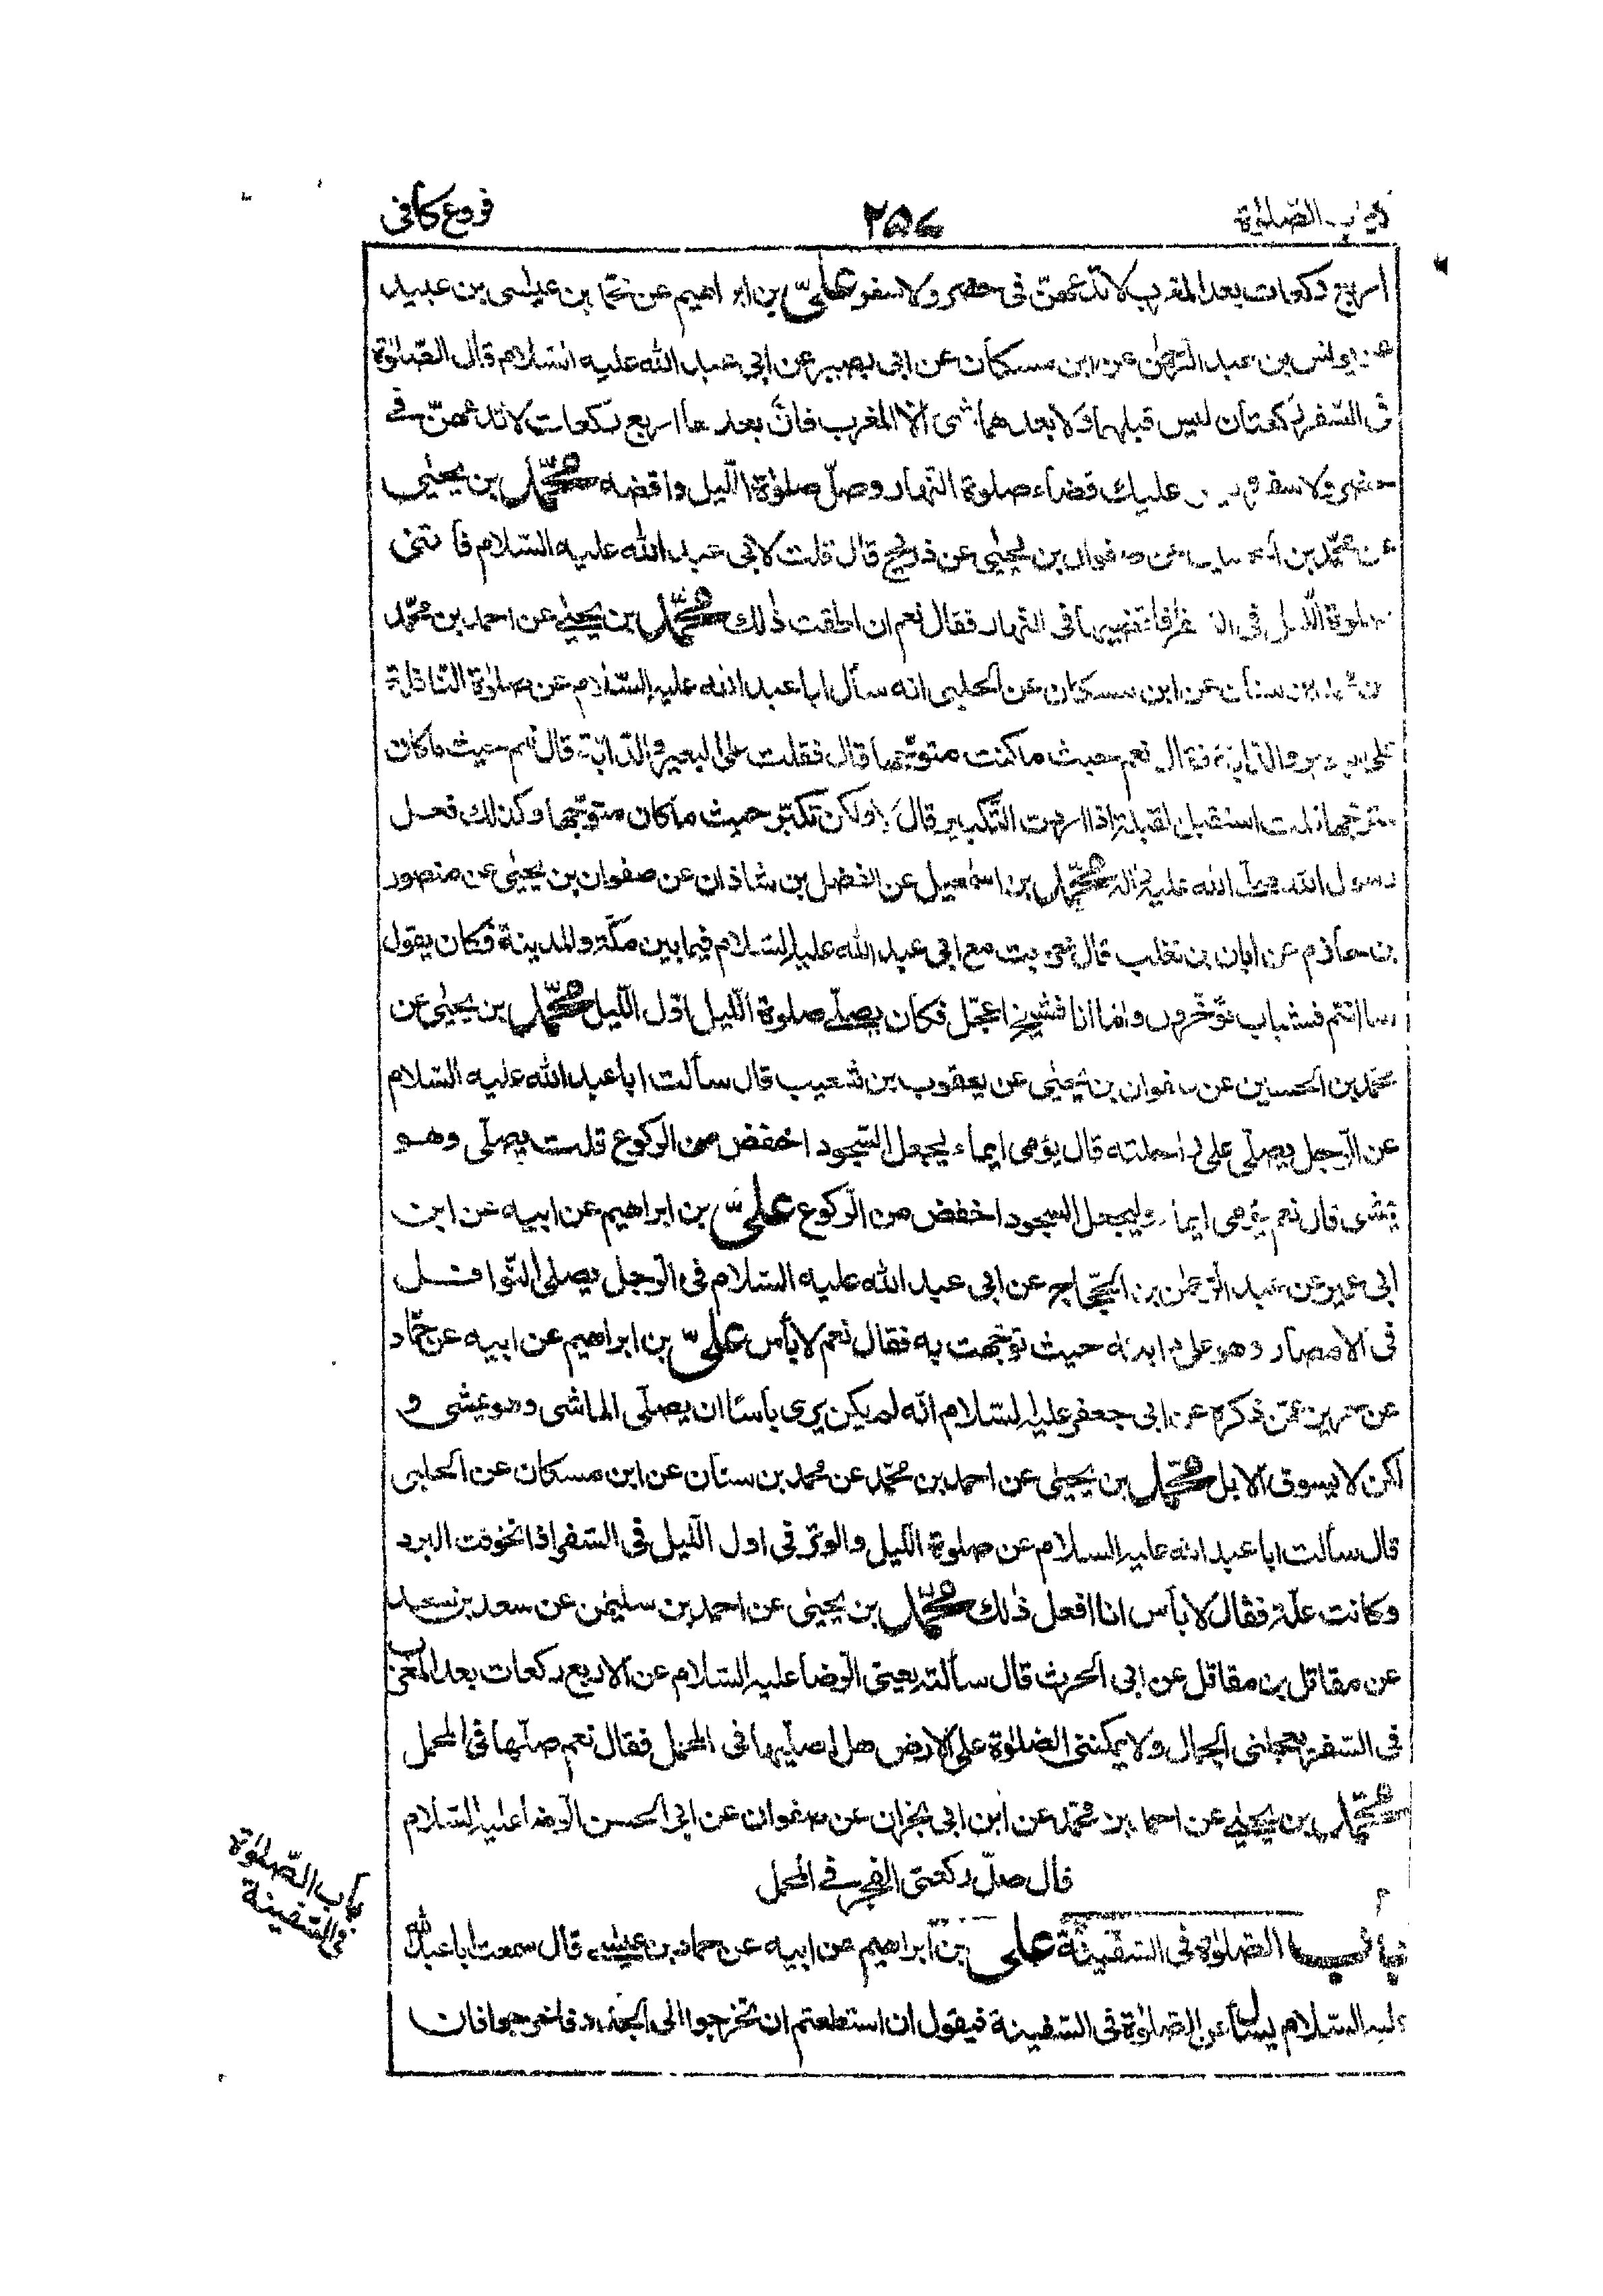 ابواب الصّلوٰة
۲۵۷
فروع كافى
اربع ركعات بعد المغرب لا تدعهنّ فى حضر ولا سفر علىّ بن ابراهيم عن محمّد بن عيسى بن عبيد
عن يونس بن عبد الرّحمٰن عن ابن مسكان عن ابى بصير عن ابى عبد الله عليه السّلام قال الصّلوٰة
فى السّفر ركعتان ليس قبلهما ولا بعدهما شىء الّا المغرب فانّ بعدها اربع ركعات لا تدعهنّ فى
حضر ولا سفر وليس عليك قضاء صلوة النّهار وصلّ صلوٰة اللّيل واقضه محمّد بن يحيٰى
عن محمّد بن الحسين عن صفوان بن يحيٰى عن ذريح قال قلت لابى عبد الله عليه السّلام فاتتنى
صلوة اللّيل فى السفر فاقضيها فى النّهار فقال نعم ان اطقت ذٰلك محمّد بن يحيٰى عن احمد بن محمّد
عن محمد بن سنان عن ابن مسكان عن الحلبى انه سأل ابا عبد الله عليه السّلام عن صلوٰة النّافلة
على البعير والدّابّة فقال نعم حيث ما كنت متوجّها قال فقلت على البعير والدّابّة قال نعم حيث ما كان
متوجّها قلت استقبل القبلة اذا اردت التّكبير قال لا ولكن تكبّر حيث ما كان متوجّها وكذلك فعل
رسول الله صلى الله عليه واله محمّد بن اسمٰعيل عن الفضل بن شاذان عن صفوان بن يحيٰى عن منصور
بن حازم عن ابان بن تغلب قال خرجت مع ابى عبد الله عليه السّلام فيما بين مكّة والمدينة فكان يقول
امّا انتم فشباب تؤخّرون وامّا انا فشيخ اعجّل فكان يصلّى صلوة اللّيل اوّل اللّيل محمّد بن يحيٰى عن
محمّد بن الحسين عن صفوان بن يحيٰى عن يعقوب بن شعيب قال سألت ابا عبد الله عليه السّلام
عن الرّجل يصلّى على راحلته قال يؤمى ايماء يجعل السّجود اخفض من الركوع قلت يصلّى وهو
يمشى قال نعم يؤمى ايماء وليجعل السجود اخفض من الرّكوع علىّ بن ابراهيم عن ابيه عن ابن
ابى عمير عن عبد الرّحمٰن بن الحجّاج عن ابى عبد الله عليه السّلام فى الرّجل يصلى النّوافل
فى الامصار وهو على دابته حيث توجّهت به فقال نعم لا بأس علىّ بن ابراهيم عن ابيه عن حمّاد
عن حريز عمّن ذكره عن ابى جعفر عليه السّلام انّه لم يكن يرى بأسًا ان يصلّى الماشى وهو يمشى و
لكن لا يسوق الابل محمّد بن يحيٰى عن احمد بن محمّد عن محمد بن سنان عن ابن مسكان عن الحلبى
قال سألت ابا عبد الله عليه السلام عن صلوة اللّيل والوتر فى اول اللّيل فى السّفر اذا تخوّفت البرد
وكانت علّة فقال لا بأس انا افعل ذٰلك محمّد بن يحيٰى عن احمد بن سليمٰن عن سعد بن سعد
عن مقاتل بن مقاتل عن ابى الحرث قال سألته يعنى الرّضا عليه السّلام عن الاربع ركعات بعد المغرب
فى السّفر يعجلنى الجمال ولا يمكننى الصّلوٰة على الارض هل اصلّيها فى المحمل فقال نعم صلّها فى المحمل
محمّد بن يحيٰى عن احمد بن محمّد عن ابن ابى نجران عن صفوان عن ابى الحسن الرّضا عليه السّلام
قال صلّ ركعتى الفجر فى المحمل
باب الصّلوٰة فى السّفينة علىّ بن ابراهيم عن ابيه عن حماد بن عيسى قال سمعت ابا عبد الله
عليه السّلام يسأل عن الصّلوٰة فى السّفينة فيقول ان استطعتم ان تخرجوا الى الجدد فاخرجوا فان
باب الصّلوٰة
فى السّفينة